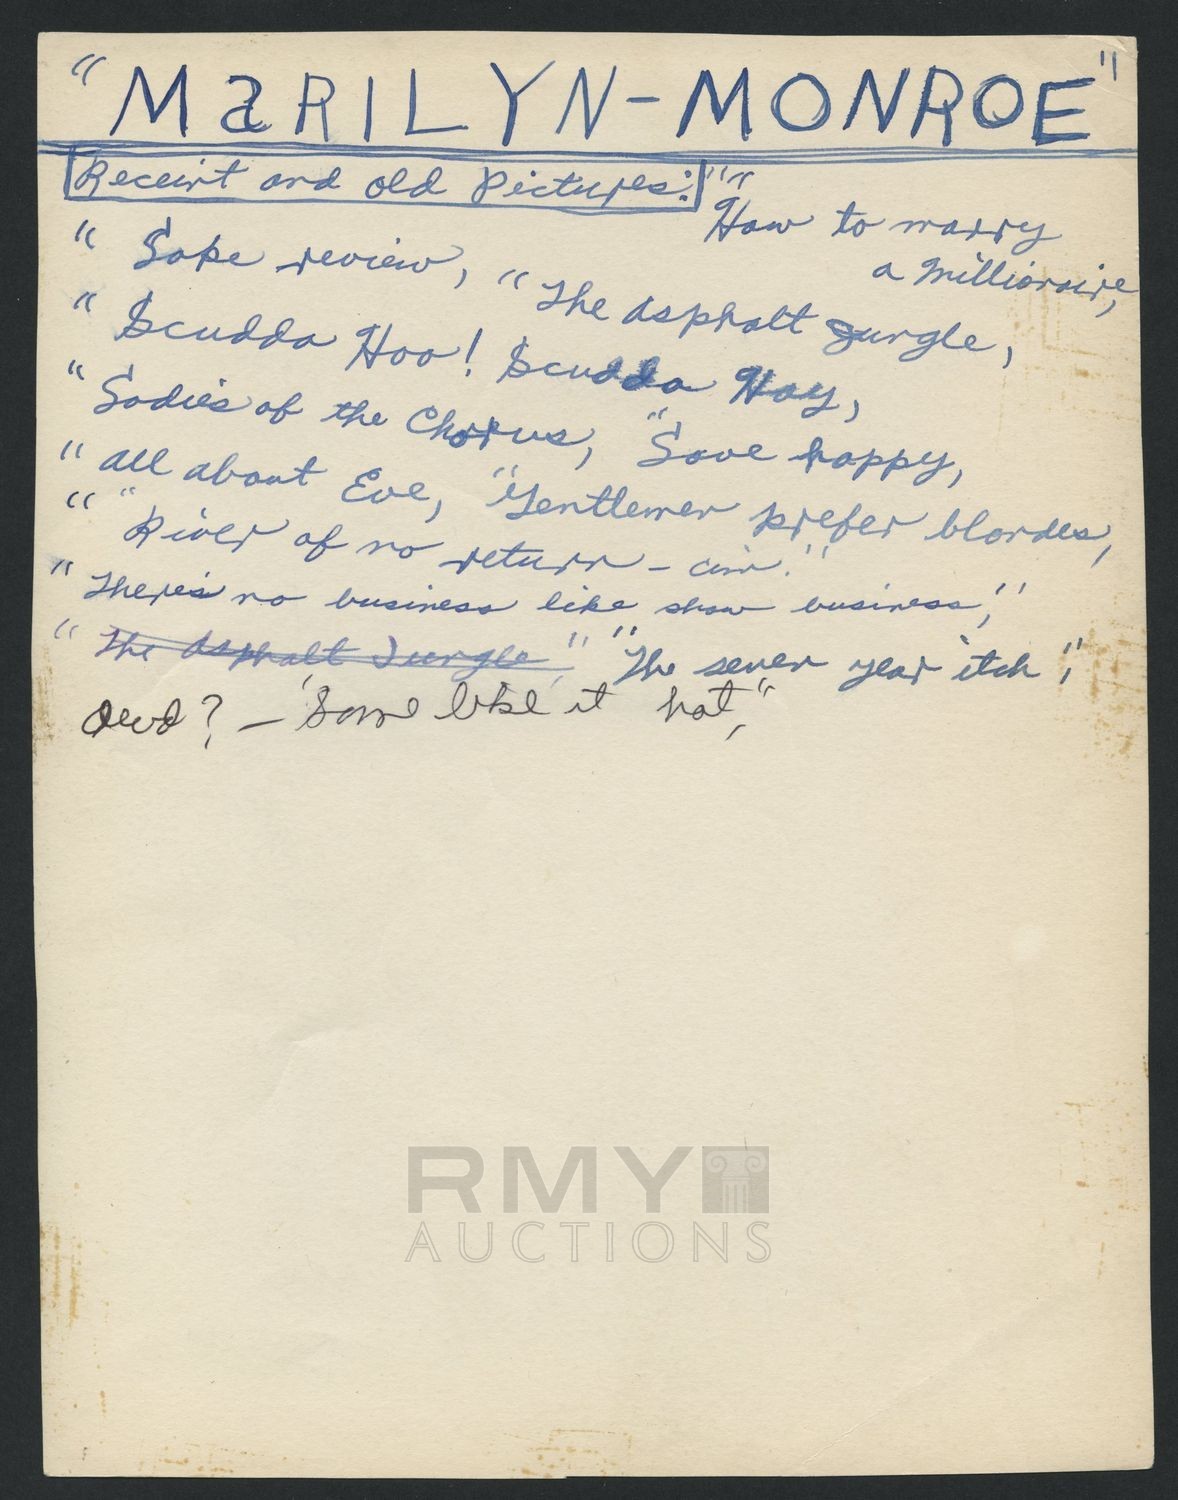 "MaRILYN-MONROE"
Receint and old Pictures:
"" How to marry
a millionaire,
" Soke review, " The asphalt Jungle,
" Scudda Hoo! Scudda Hay,
" Sadie's of the Chorus, " Love happy,
" all about Eve, "Gentlemen prefer blondes,
" " River of no return - cin."
" There's no business like show business,"
" The Asphalt Jungle," "The seven year itch",
and? - 'Some like it hot,"
RMY
AUCTIONS